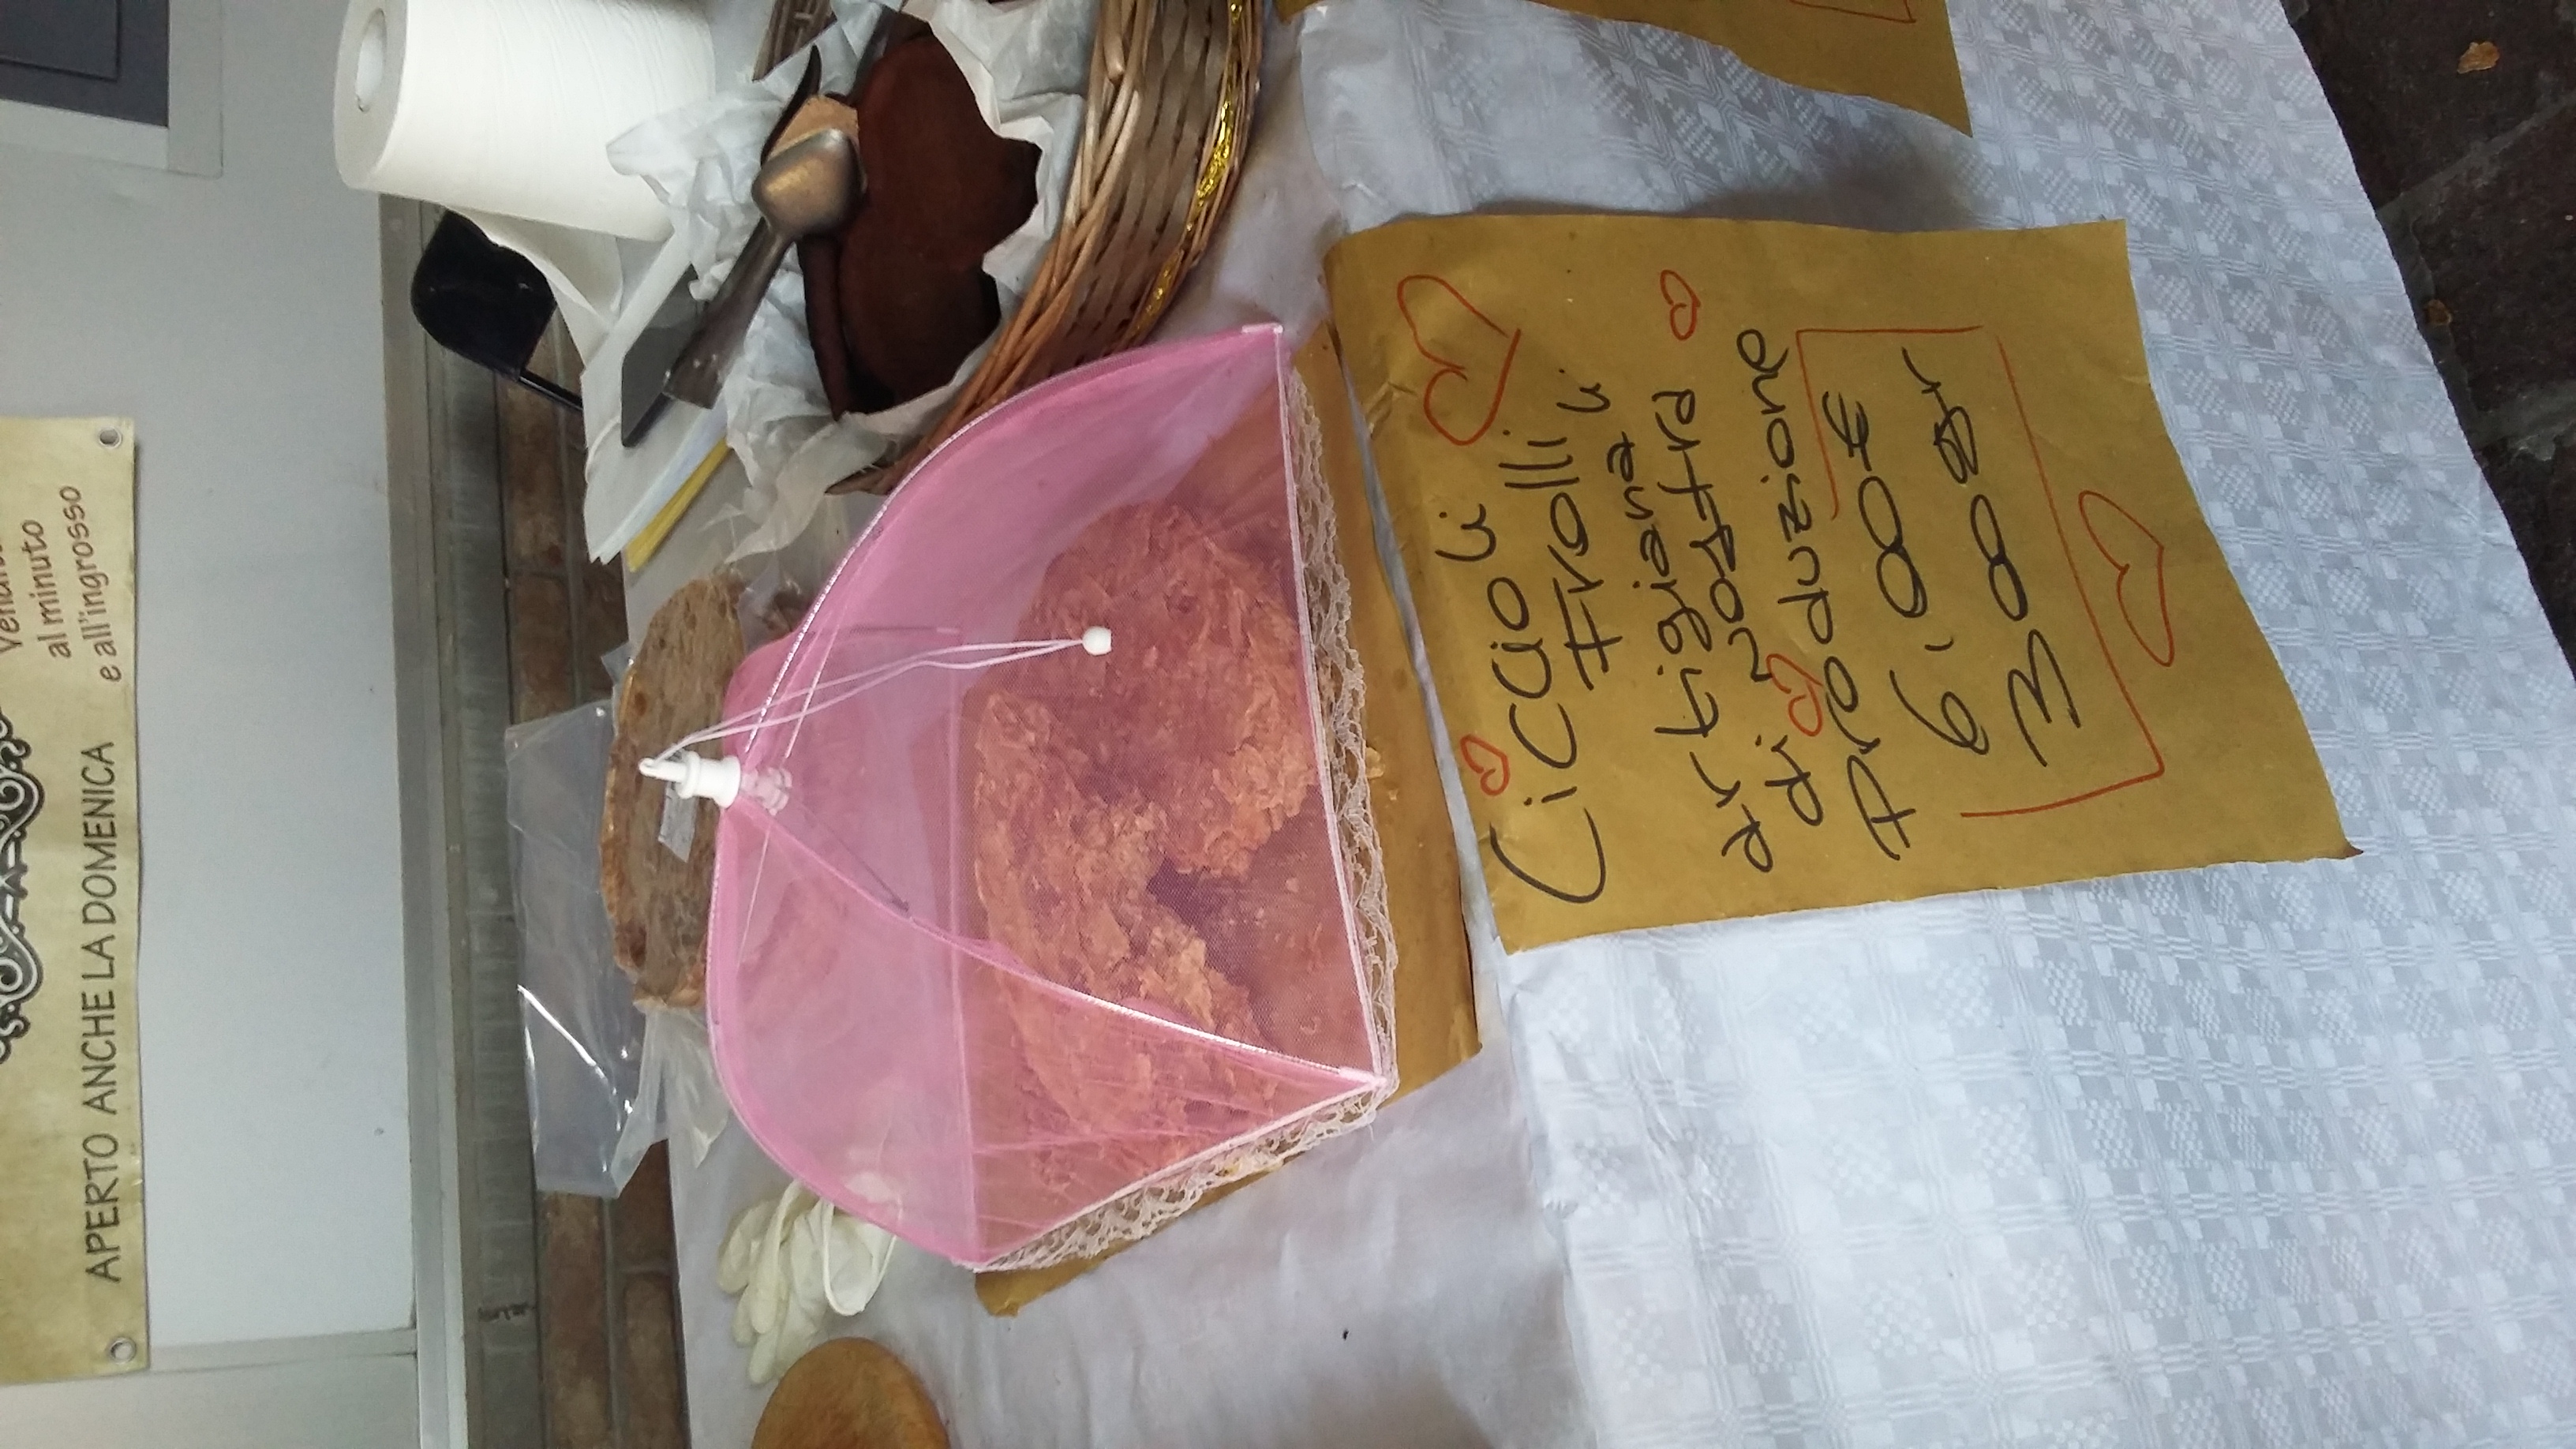 APERTO ANCHE LA DOMENICA
al minuto
e all'ingrosso
Ciccioli
Frolli
artigianali
di nostra
Produzione
6,00€
300gr